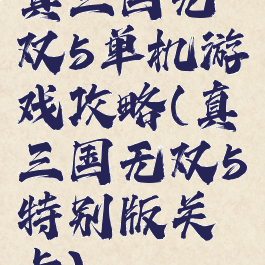 真三国无
双5单机游
戏攻略(真
三国无双5
特别版关
卡)